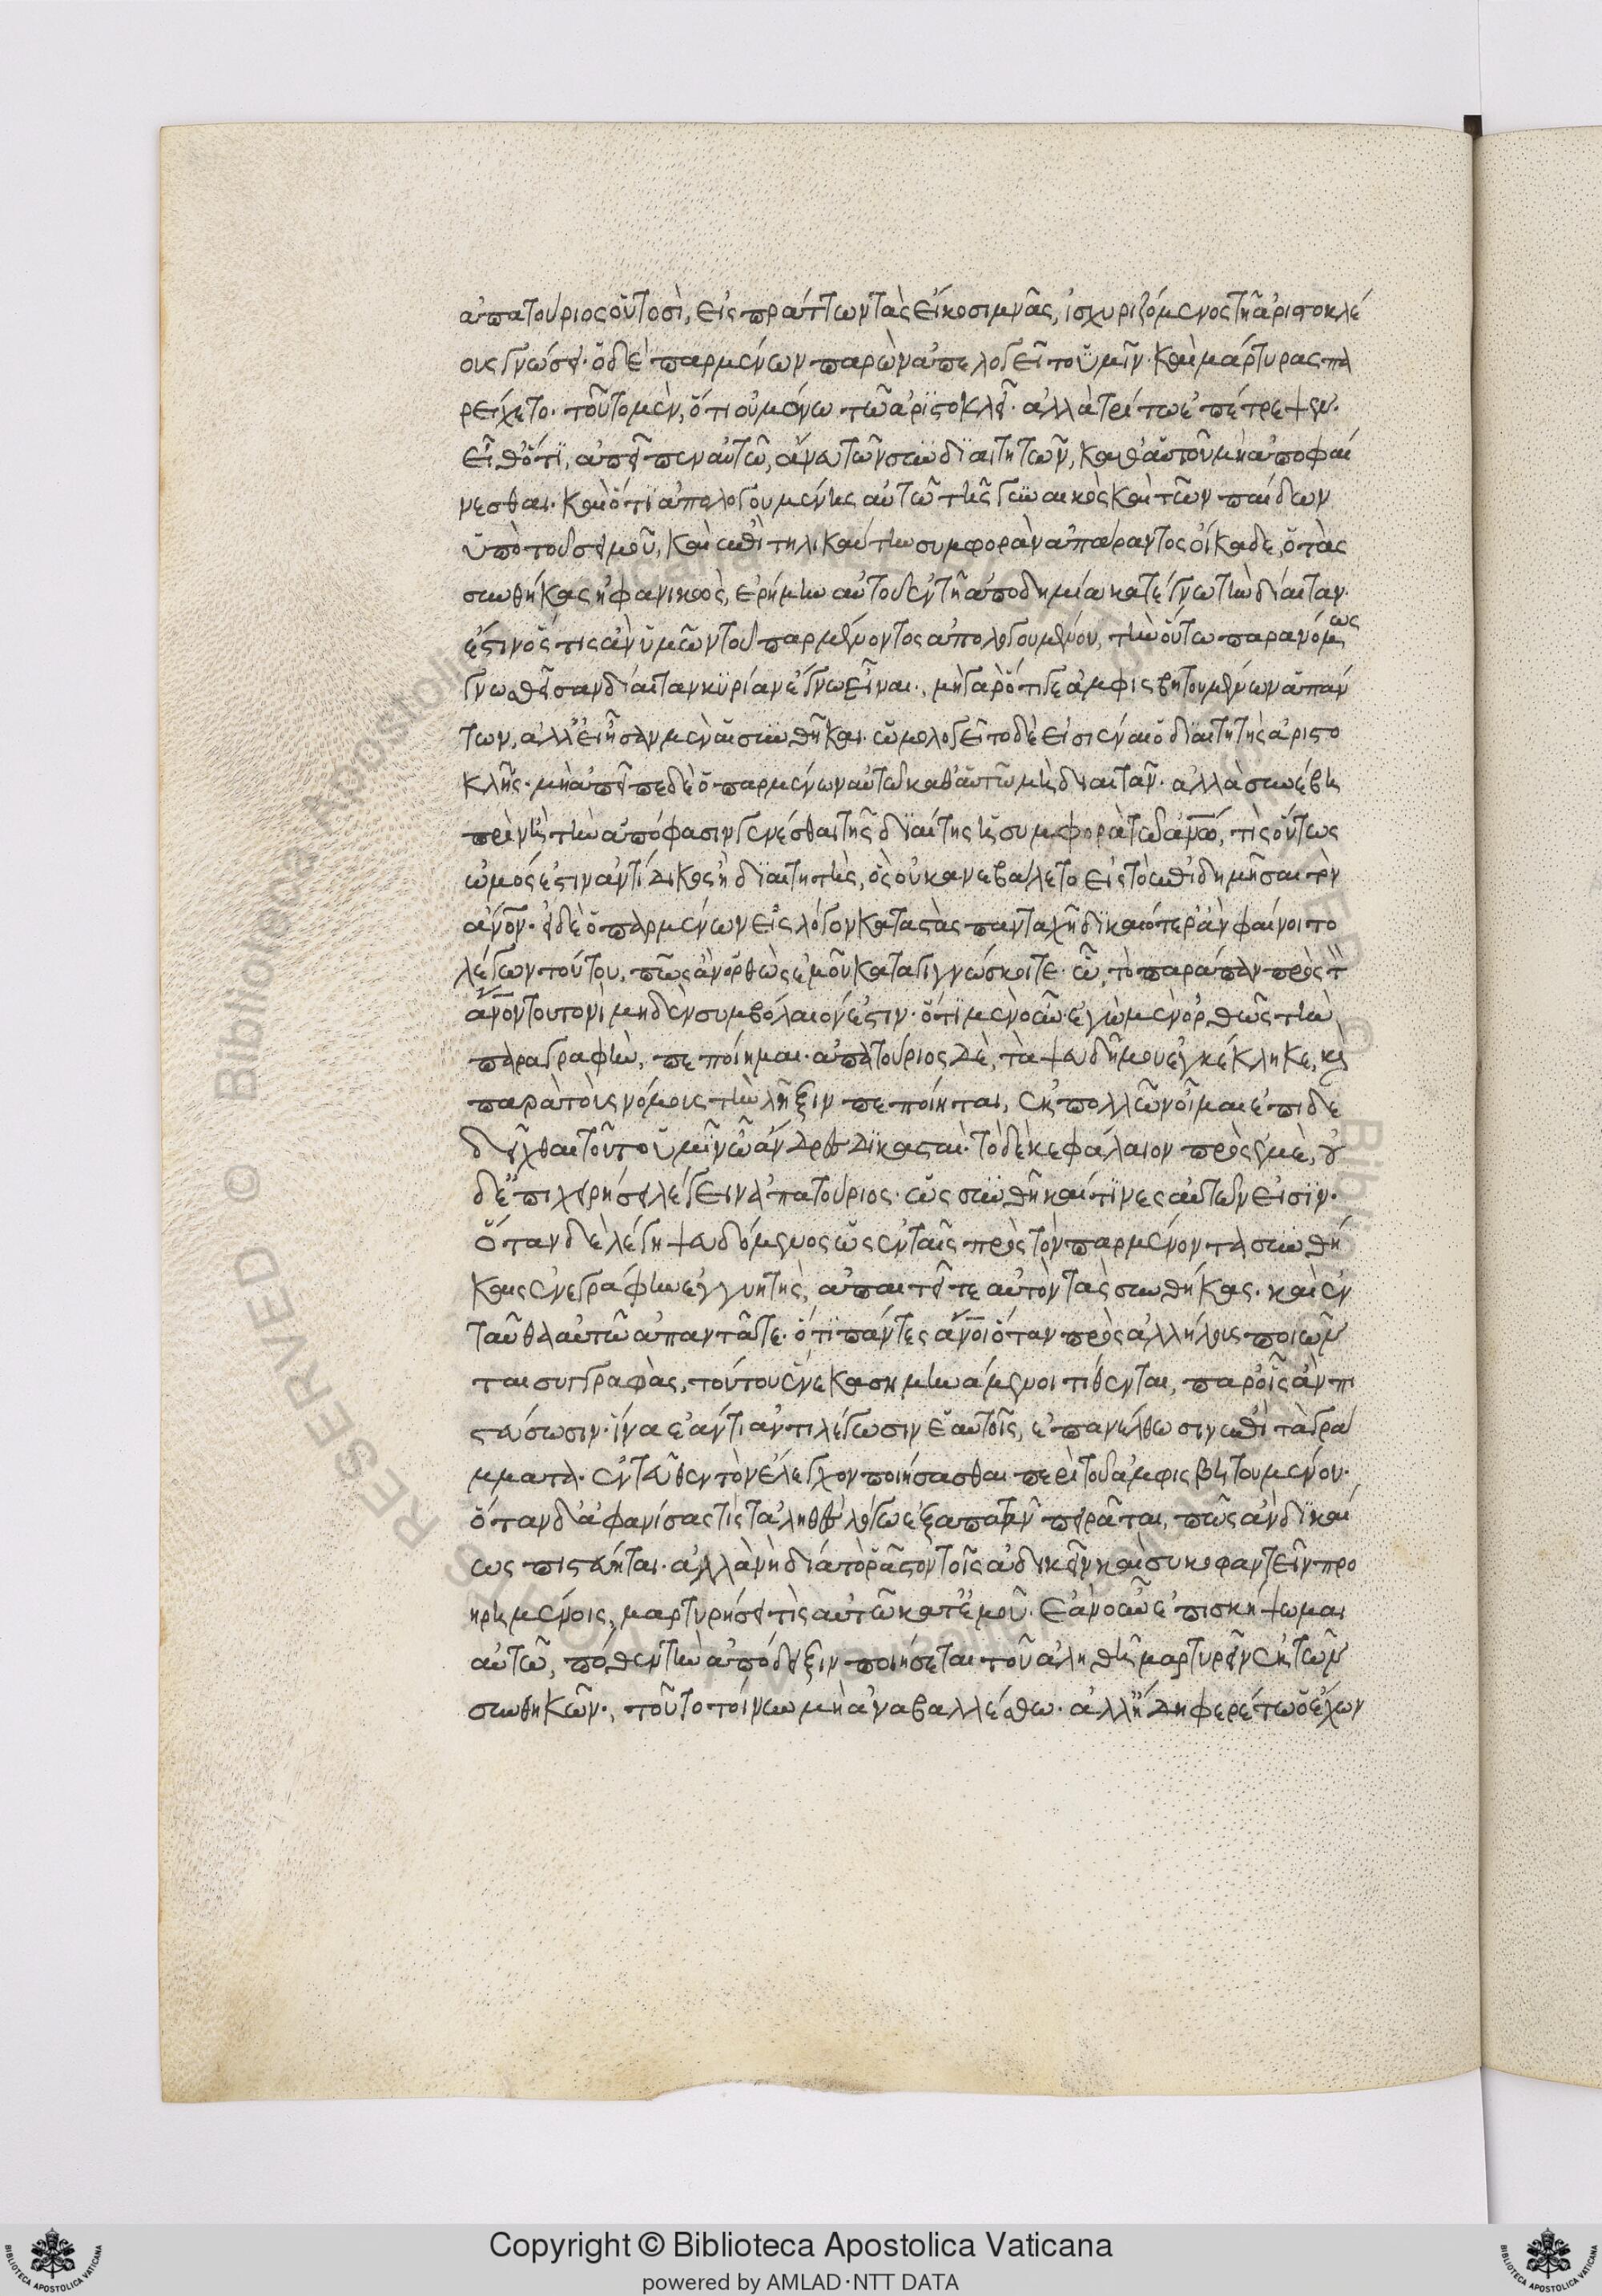 ἀπατούριος οὑτοσὶ, εἰσπράττων τὰς εἴκοσι μνᾶς, ἰσχυριζόμενος τῆ ἀριστοκλέ
ους γνώσει· ὁ δὲ παρμένων παρὼν ἀπελογεῖτο ὑμῖν· καὶ μάρτυρας πα
ρείχετο· τοῦτο μὲν, ὅτι οὐ μόνω τῶ ἀριστοκλεῖ· ἀλλὰ τρίτω ἐπέτρεψεν·
εἶθ' ὅτι, ἀπεῖπεν αὐτῶ, ἄνευ τῶν συνδιαιτητῶν, καθ' αὑτοῦ μὴ ἀποφαί
νεσθαι· καὶ ὅτι ἀπολογουμένης αὐτῶ τῆς γυναικὸς καὶ τῶν παίδων
ὑπὸ τοῦ σεισμοῦ, καὶ ἐπὶ τηλικαύτην συμφορὰν ἀπάραντος οἴκαδε, ὁ τὰς
συνθήκας ἠφανικὼς, ἐρήμην αὐτοῦ ἐν τῆ ἀποδημία κατέγνω τὴν δίαιταν·
ἔστιν ὅστις ἂν ὑμῶν τοῦ παρμένοντος ἀπολογουμένου, τὴν οὕτω παρανόμως
γνωσθεῖσαν δίαιταν κυρίαν ἔγνω εἶναι·, μὴ γὰρ ὅτι γε ἀμφισβητουμένων ἁπάν
των, ἀλλ' εἰ ἦσαν μὲν αἱ συνθῆκαι· ὡμολογεῖτο δὲ εἷς εἶναι ὁ διαιτητὴς ἀριστο
κλῆς· μὴ ἀπεῖπε δὲ ὁ παρμένων αὐτῶ καθ' αὑτῶ μὴ διαιτᾶν· ἀλλὰ συνέβη
πρὶν ἢ τὴν ἀπόφασιν γενέσθαι τῆς διαίτης ἡ συμφορὰ τῶ ἀνω, τίς οὕτως
ὠμός ἐστιν ἀντίδικος ἢ διαιτητὴς, ὃς οὐκ ἂν ἐβάλετο εἰς τὸ ἐπιδημῆσαι τὸν
ἄνον· εἰ δὲ ὁ παρμένων εἰς λόγον καταστὰς πανταχῆ δικαιότερ' ἂν φαίνοιτο
λέγων τούτου, πῶς ἂν ὀρθῶς ἐμοῦ καταγιγνώσκοιτε· ὧ, τὸ παράπαν πρὸς τ
ἄνον τουτονὶ μηδὲν συμβόλαιόν ἐστιν· ὅτι μὲν οὖν ἐγὼ μὲν ὀρθῶς τὴν
παραγραφὴν, πεποίημαι· ἀπατούριος δὲ, τὰ ψευδῆ μου ἐγκέκληκε, καὶ
παρὰ τοὺς νόμους τὴν λῆξιν πεποίηται, ἐκ πολλῶν οἶμαι ἐπιδε
δεῖχθαι τοῦτο ὑμῖν ὦ ἄνδρες δικασταί· τὸ δὲ κεφάλαιον πρὸς ἐμὲ, οὐ
δ' ἐπιχειρήσει λέγειν ἀπατούριος· ὡς συνθῆκαί τινες αὐτῶ εἰσίν·
ὅταν δὲ λέγη ψευδόμενος ὡς ἐν ταῖς πρὸς τὸν παρμένοντα συνθή
καις ἐνεγράφην ἐγγυητὴς, ἀπαιτεῖτε αὐτὸν τὰς συνθήκας· καὶ ἐν
ταῦθα αὐτῶ ἀπαντᾶτε· ὅτι πάντες ἄνοι ὅταν πρὸς ἀλλήλους ποιῶν
ται συγγραφὰς, τούτου ἕνεκα σημηνάμενοι τίθενται, παρ' οἷς ἂν πι
στεύσωσιν· ἵνα ἐάν τι ἀντιλέγωσιν ἑαυτοῖς, ἐπανέλθωσιν ἐπὶ τὰ γρά
μματα· ἐντεῦθεν τὸν ἔλεγχον ποιήσασθαι περὶ τοῦ ἀμφισβητουμένου·
ὅταν δ' ἀφανίσας τὶς τἀληθῆ λόγω ἐξαπατᾶν πειρᾶται, πῶς ἂν δικαί
ως πιστεύηται· ἀλλὰ νὴ δία τὸ ῥᾶστον τοῖς ἀδικεῖν καὶ συκοφαντεῖν προ
ηρημένοις, μαρτυρήσει τὶς αὐτῶ κατ' ἐμοῦ· ἐὰν οὖν ἐπισκήψωμαι
αὐτῶ, πόθεν τὴν ἀπόδειξιν ποιήσεται τοῦ ἀληθῆ μαρτυρεῖν ἐκ τῶν
συνθηκῶν·, τοῦτο τοίνυν μὴ ἀναβαλλέσθω· ἀλλ' ἤδη φερέτω ὁ ἔχων
Copyright © Biblioteca Apostolica Vaticana
powered by AMLAD·NTT DATA